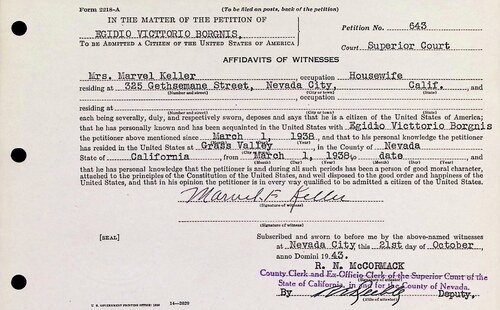 Form 2218-A
(To be filed on posts, back of the petition)
IN THE MATTER OF THE PETITION OF
EGIDIO VICTTORIO BORGNIS,
TO BE ADMITTED A CITIZEN OF THE UNITED STATES OF AMERICA
Petition No. 643
Court Superior Court
AFFIDAVITS OF WITNESSES
Mrs. Marvel Keller, occupation Housewife
residing at 325 Gethsemane Street, Nevada City, Calif. and
(Number and street) (City or town) (State)
, occupation
residing at
(Number and street) (City or town) (State)
each being severally, duly, and respectively sworn, deposes and says that he is a citizen of the United States of America;
that he has personally known and has been acquainted in the United States with Egidio Victtorio Borgnis
the petitioner above mentioned since March 1, 1938, and that to his personal knowledge the petitioner
(Month) (Day) (Year)
has resided in the United States at Grass Valley in the County of Nevada
(City or town)
State of California, from March 1, 1938 to date, and
(Month) (Day) (Year) (Month) (Day) (Year)
that he has personal knowledge that the petitioner is and during all such periods has been a person of good moral character,
attached to the principles of the Constitution of the United States, and well disposed to the good order and happiness of the
United States, and that in his opinion the petitioner is in every way qualified to be admitted a citizen of the United States.
Marvel F. Keller
(Signature of witness)
(Signature of witness)
[SEAL]
Subscribed and sworn to before me by the above-named witnesses
at Nevada City this 21st day of October,
anno Domini 1943.
R. N. McCORMACK
County Clerk and Ex-Officio Clerk of the Superior Court of the
State of California, in and for the County of Nevada.
By Deputy.
(Title of officer)
U. S. GOVERNMENT PRINTING OFFICE 14-2029